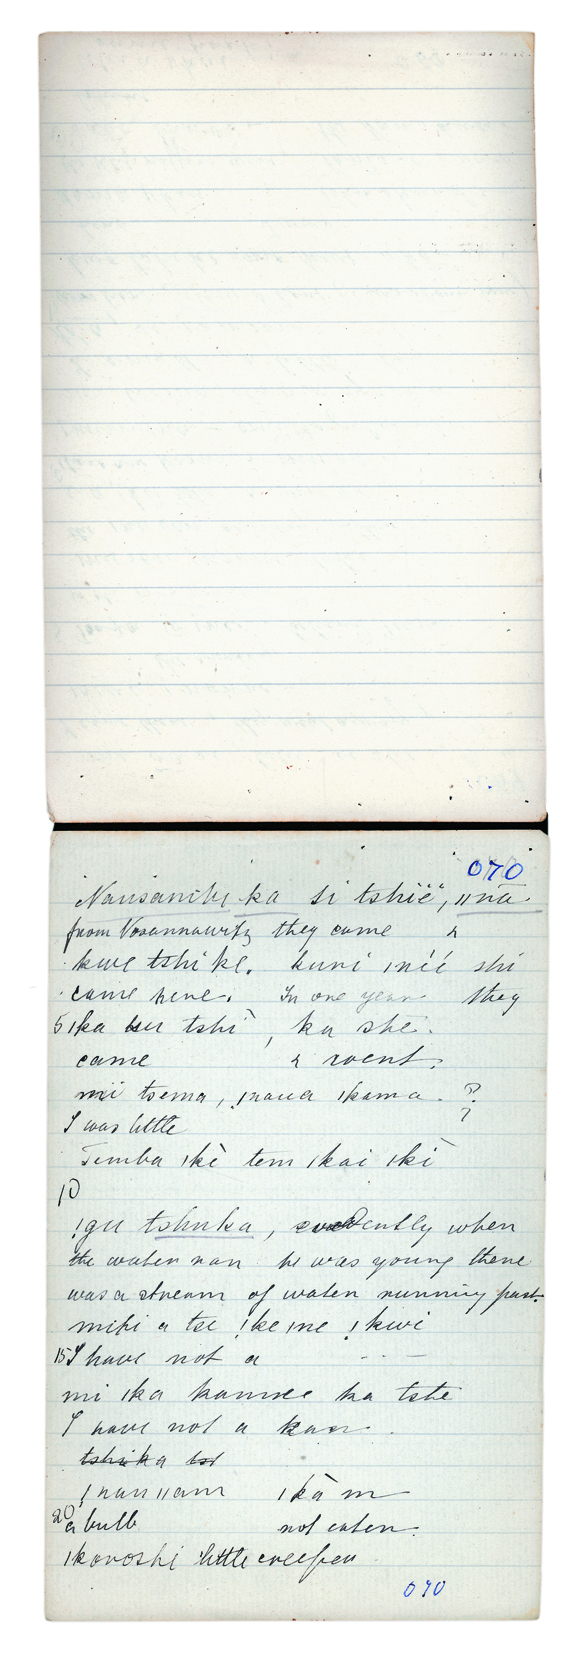 070
Nausanibi ka si tshië, ||nā
from Vosannawitz they came &
kwe tshi ke. kuni |níí shi
came here. In one year they
5 |ka tshī, ka she.
came & went.
mï tsema, |kama. ?
I was little ?
Temba |kè tem |kai |kì
10
!gu tshuka, evidently when
the water ran he was young there
was a stream of water running past.
a tse !ke |ne !kwi
15 I have not a
mi |ka ka tshe
I have not a
tshuka tst
!nau ||am |kā m
20 a bulb not eaten.
|koroshi little creeper
070